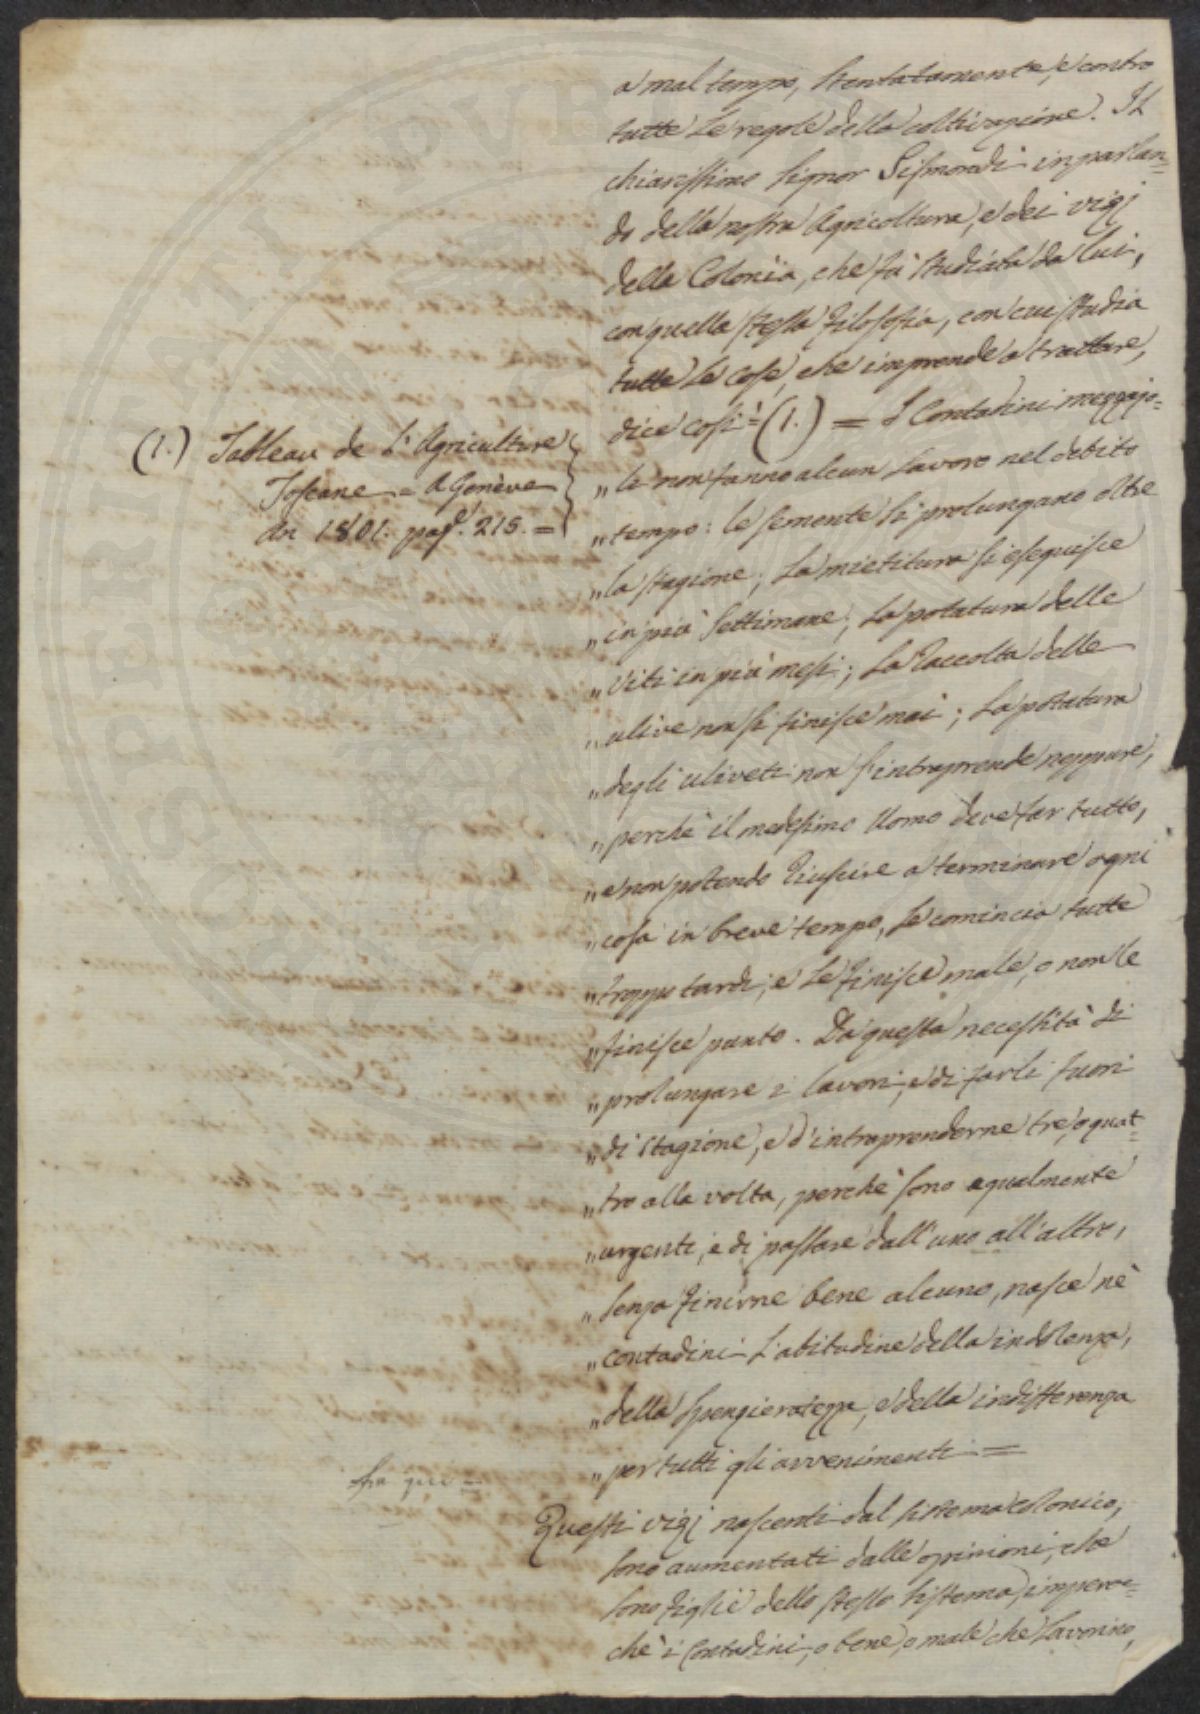 a mal tempo, stentatamente, e contro
tutte le regole della coltivazione. Il
chiarissimo Signor Sismondi in parlan=
do della nostra Agricoltura, e dei vizj
della Colonìa, che fù studiata da lui,
con quella stessa filosofia, con cui studia
tutte le cose, che imprende a trattare,
dice così = (1.) = I Contadini mezzajo=
(1.) Tableau de L'Agriculture
Toscane = A Genève
An 1801. pag. 215. =
„ li non fanno alcun lavoro nel debito
„ tempo: le semente si prolungano oltre
„ la stagione; La mietitura si eseguisce
„ in più Settimane; La potatura delle
„ Viti in più mesi; La Raccolta delle
„ ulive non si finisce mai; La potatura
„ degli uliveti non s'intraprende neppure,
„ perchè il medesimo Uomo deve far tutto,
„ e non potendo riuscire a terminare ogni
„ cosa in breve tempo, Le comincia tutte
„ troppo tardi, e Le finisce male, o non le
„ finisce punto. Da questa necessità di
„ prolungare i lavori, e di farli fuori
„ di Stagione, e d'intraprenderne tre, o quat=
„ tro alla volta, perchè sono egualmente
„ urgenti, e di passare dall'uno all'altro,
„ senza finirne bene alcuno, nasce nè
„ contadini L'abitudine della indolenza,
„ della spengieratezza, e della indifferenza
„ per tutti gli avvenimenti =
fin qui =
Questi vizj nascenti dal sistema colonico,
sono aumentati dalle opinioni, che
sono figlie dello stesso sistema, imperoc=
chè i Contadini, o bene, o male che Lavorino,